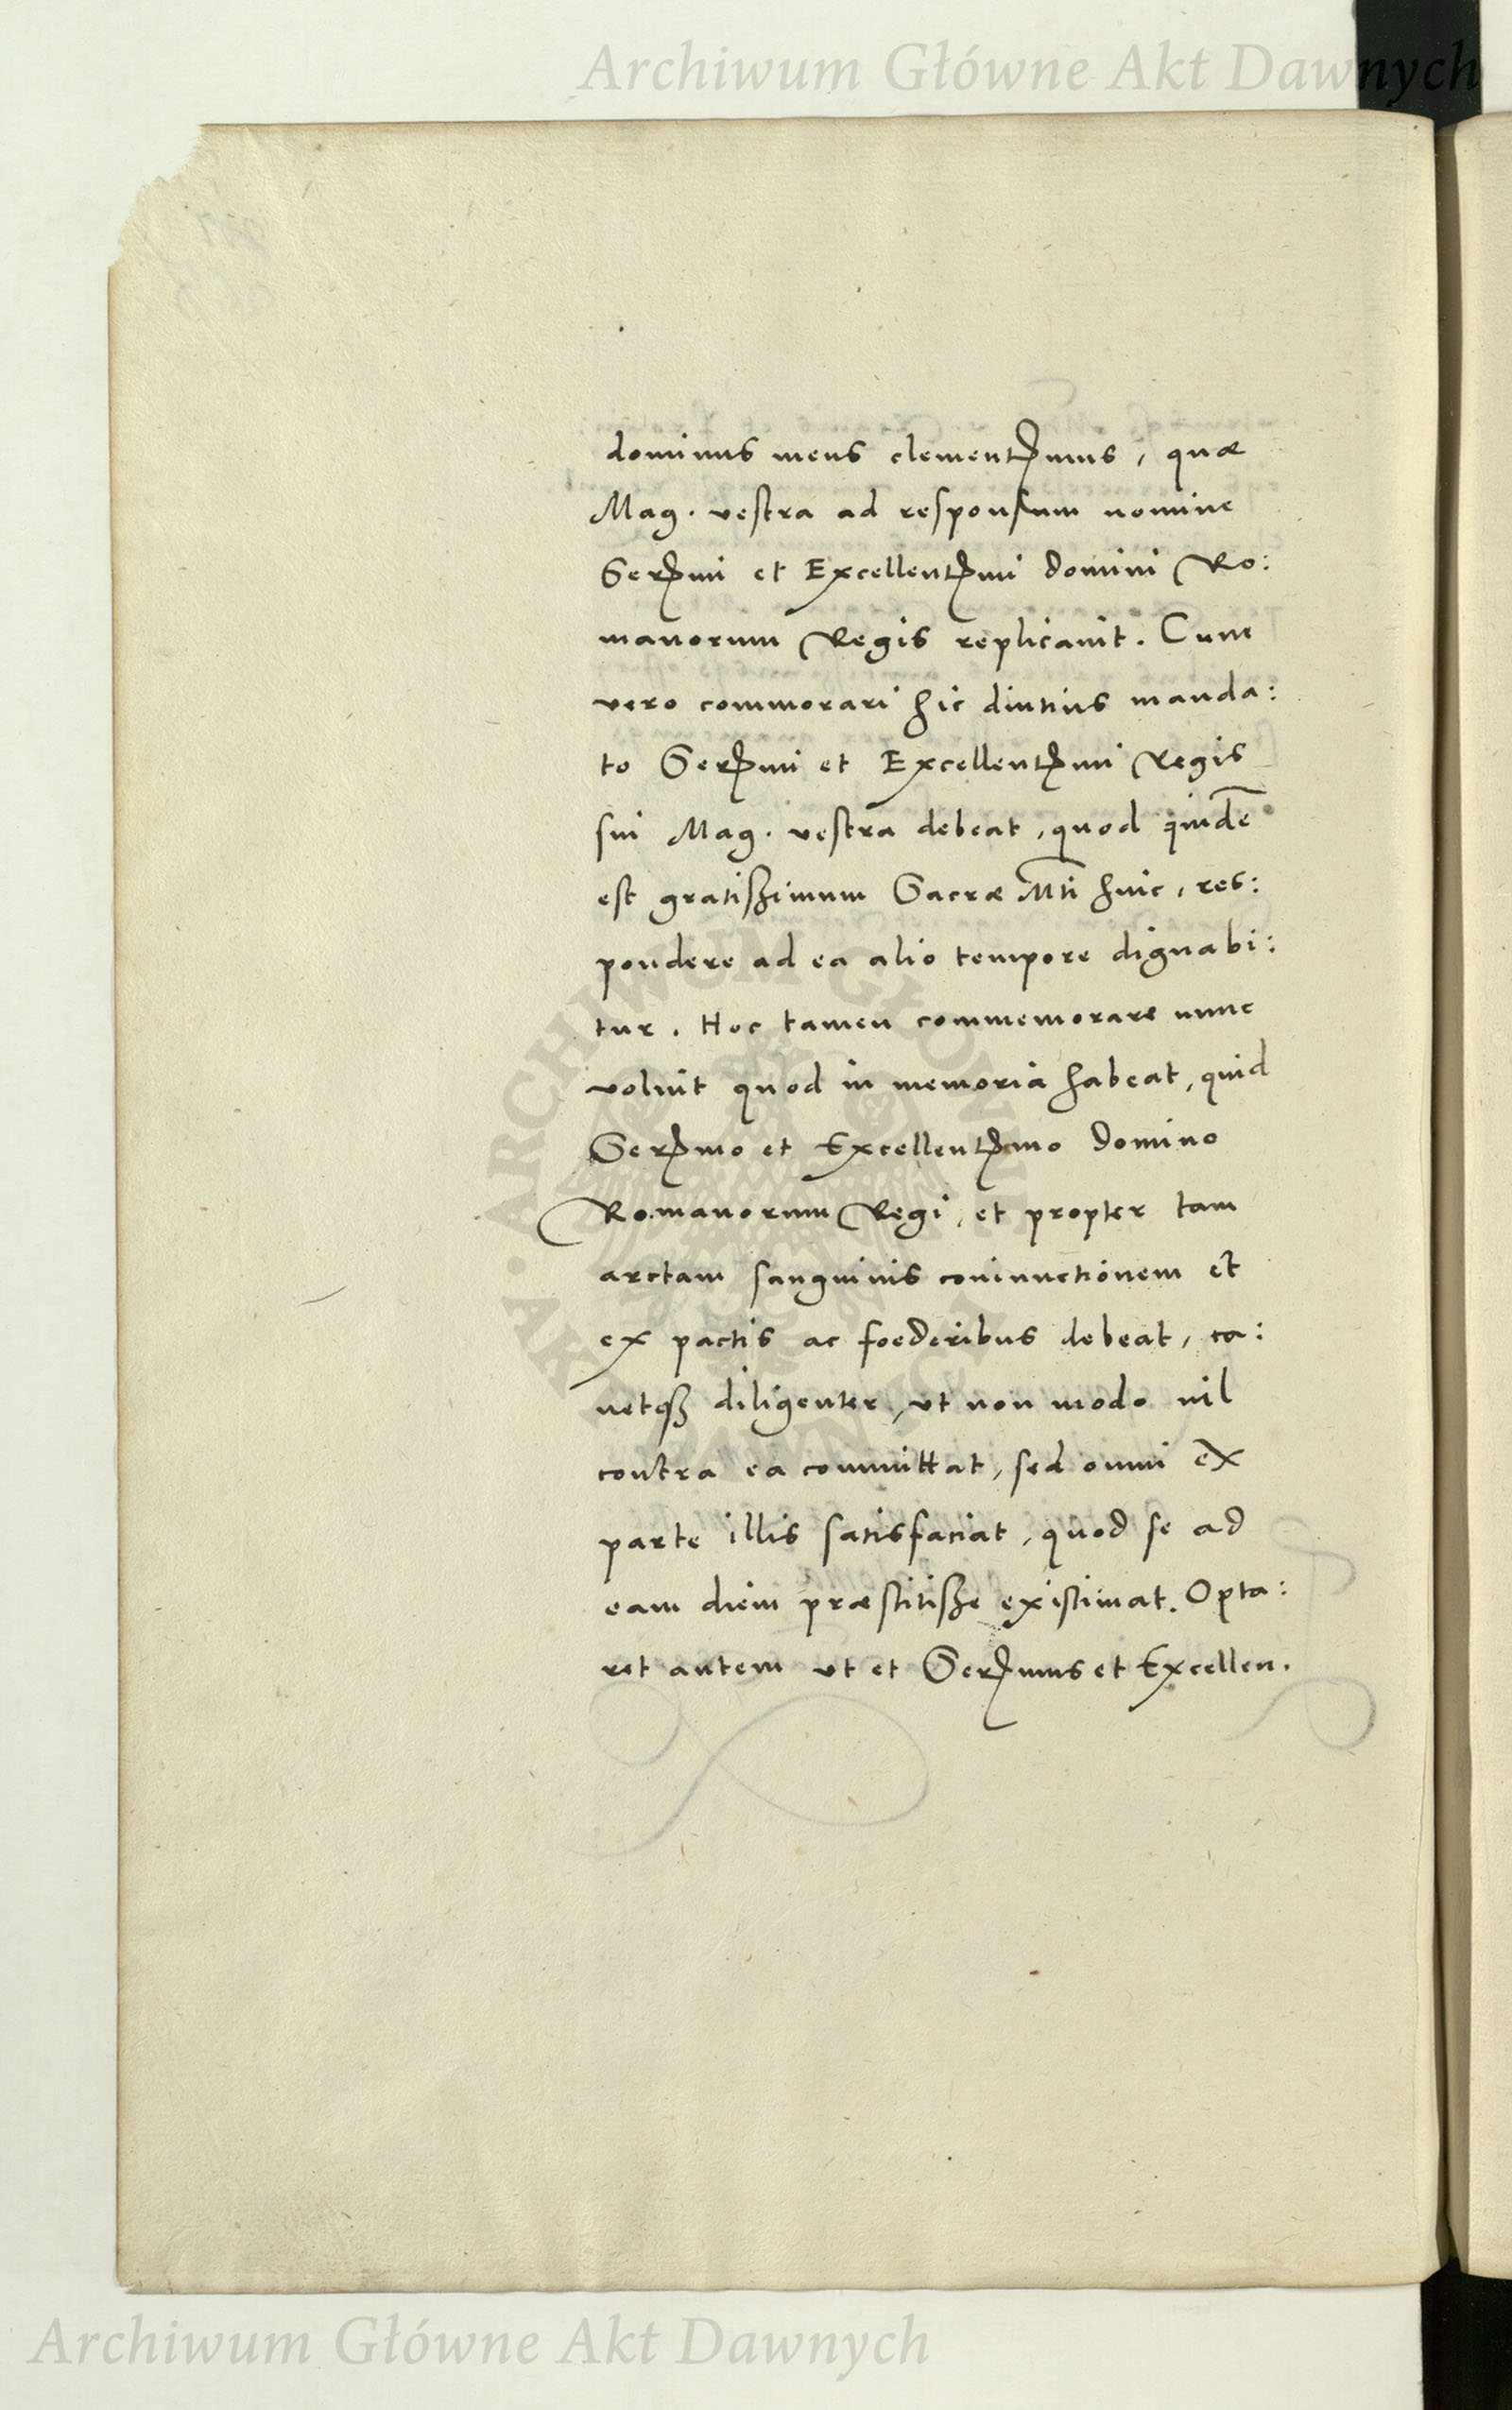 Archiwum Główne Akt Dawnych
dominus meus clementßimus, quæ
Mag. vestra ad responsum nomine
Serßmi et Excellentßmi domini Ro:
manorum Regis replicauit. Cum
vero commorari hic diutius manda:
to Serßmi et Excellentßmi Regis
sui Mag. vestra debeat, quod quidē
est gratißimum Sacræ Mti huic, res:
pondere ad ea alio tempore dignabi:
tur. Hoc tamen commemorare nunc
voluit quod in memoria habeat, quid
Serßmo et Excellentßmo domino
Romanorum Regi, et propter tam
arctam sanguinis coniunctionem et
ex pactis ac foederibus debeat, ca:
uetqȝ diligenter, vt non modo nil
contra ea committat, sed omni ex
parte illis satisfaciat, quod se ad
eam diem præstitiße existimat. Opta:
ret autem vt et Serßmus et Excellen.
ARCHIWUM GŁÓWNE AKT DAWNYCH
Archiwum Główne Akt Dawnych